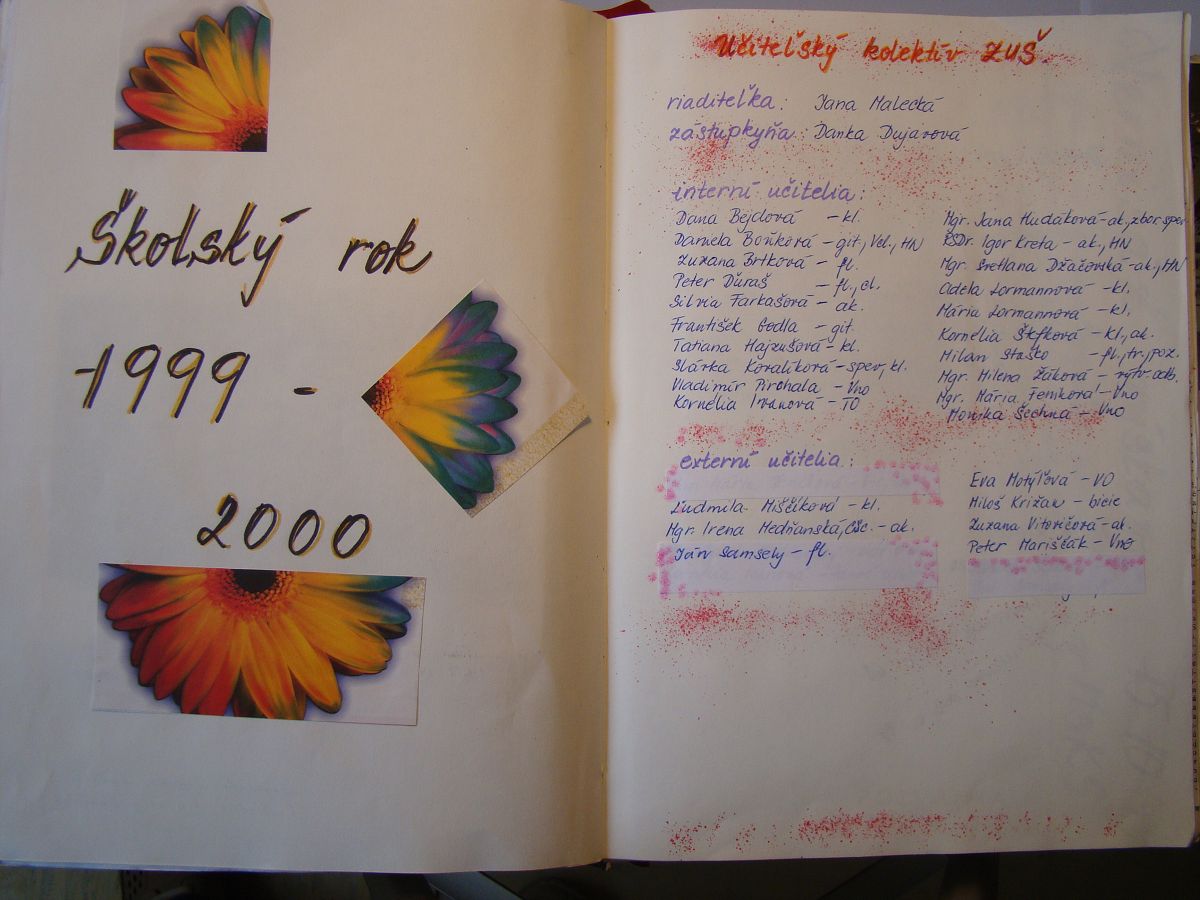 Školský rok
1999 -
2000
Učiteľský kolektív ZUŠ
riaditeľka: Jana Malecká
zástupkyňa: Danka Dujavová
interní učitelia:
Dana Bejdová - kl.
Daniela Boňková - git., Vcl., HN
Zuzana Brtková - fl.
Peter Ďuraš - fl., cl.
Silvia Farkašová - ak.
František Godla - git.
Tatiana Hajzušová - kl.
Slárka Koralíková - spev, kl.
Vladimír Pirchala - Vno
Kornélia Ivanová - TO
Mgr. Jana Hudáková - ak., zbor. spev
RSDr. Igor Kreta - ak., HN
Mgr. Svetlana Džačovská - ak., HN
Adela Lormannová - kl.
Mária Lormannová - kl.
Kornélia - kl., ak.
Milan Staško - fl., tr., poz.
Mgr. Milena Žáková - výtv. odb.
Mgr. Mária Feniková - Vno
Monika Šechná - Vno
externí učitelia:
Ľudmila Miščíková - kl.
Mgr. Irena Medňanská, CSc. - ak.
Ján Samsely - fl.
Eva Motýľová - VO
Miloš Križan - bicie
Zuzana Vitovičová - ak.
Peter Mariščák - Vno